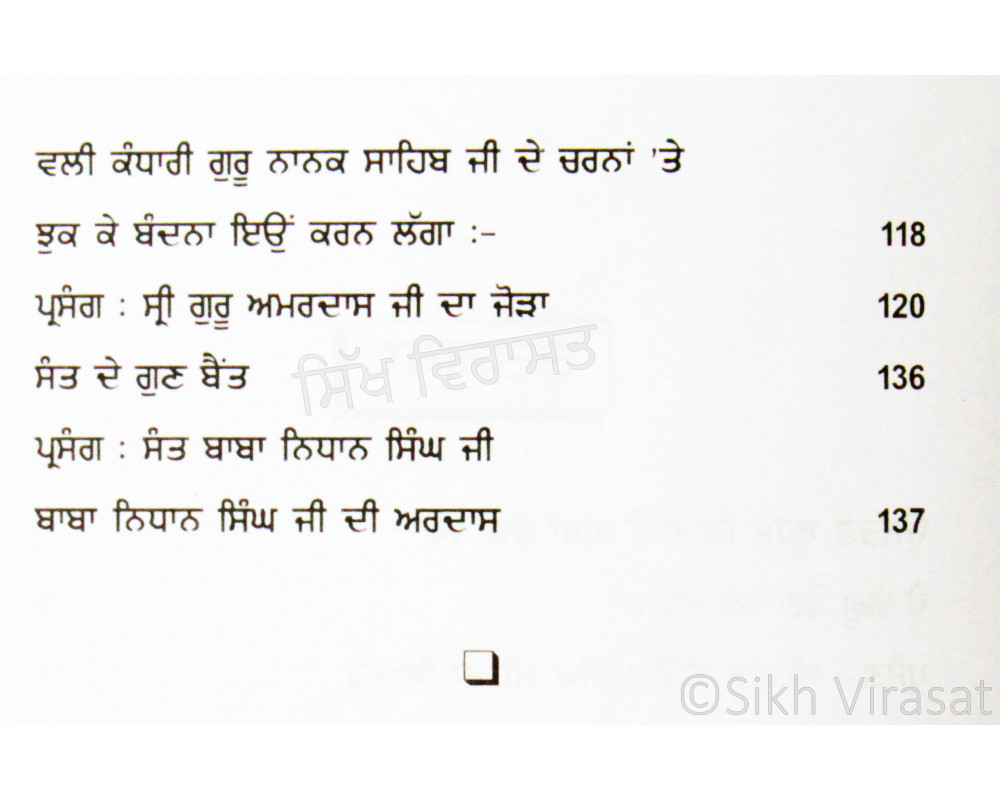 ਵਲੀ ਕੰਧਾਰੀ ਗੁਰੂ ਨਾਨਕ ਸਾਹਿਬ ਜੀ ਦੇ ਚਰਨਾਂ 'ਤੇ
ਝੁਕ ਕੇ ਬੰਦਨਾ ਇਉਂ ਕਰਨ ਲੱਗਾ :- 118
ਪ੍ਰਸੰਗ : ਸ੍ਰੀ ਗੁਰੂ ਅਮਰਦਾਸ ਜੀ ਦਾ ਜੋੜਾ 120
ਸਿੱਖ ਵਿਰਾਸਤ
ਸੰਤ ਦੇ ਗੁਣ ਬੈਂਤ 136
ਪ੍ਰਸੰਗ : ਸੰਤ ਬਾਬਾ ਨਿਧਾਨ ਸਿੰਘ ਜੀ
ਬਾਬਾ ਨਿਧਾਨ ਸਿੰਘ ਜੀ ਦੀ ਅਰਦਾਸ 137
©Sikh Virasat